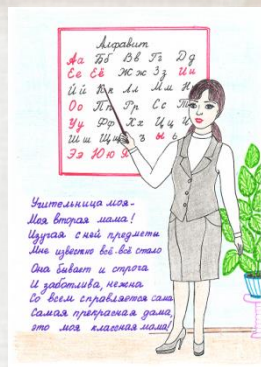 Алфавит
Аа Бб Вв Гг Дд
Ее Ёё Жж Зз Ии
Йй Кк Лл Мм Нн
Оо Пп Рр Сс Тт
Уу Фф Хх Цц Ч
Шш Щщ ъ ы ь
Ээ Юю Я
Учительница моя -
Моя вторая мама!
Изучая с ней предметы
Мне известно всё-всё стало
Она бывает и строга
И заботлива, нежна
Со всем справляется сама
Самая прекрасная дама,
это моя классная мама!